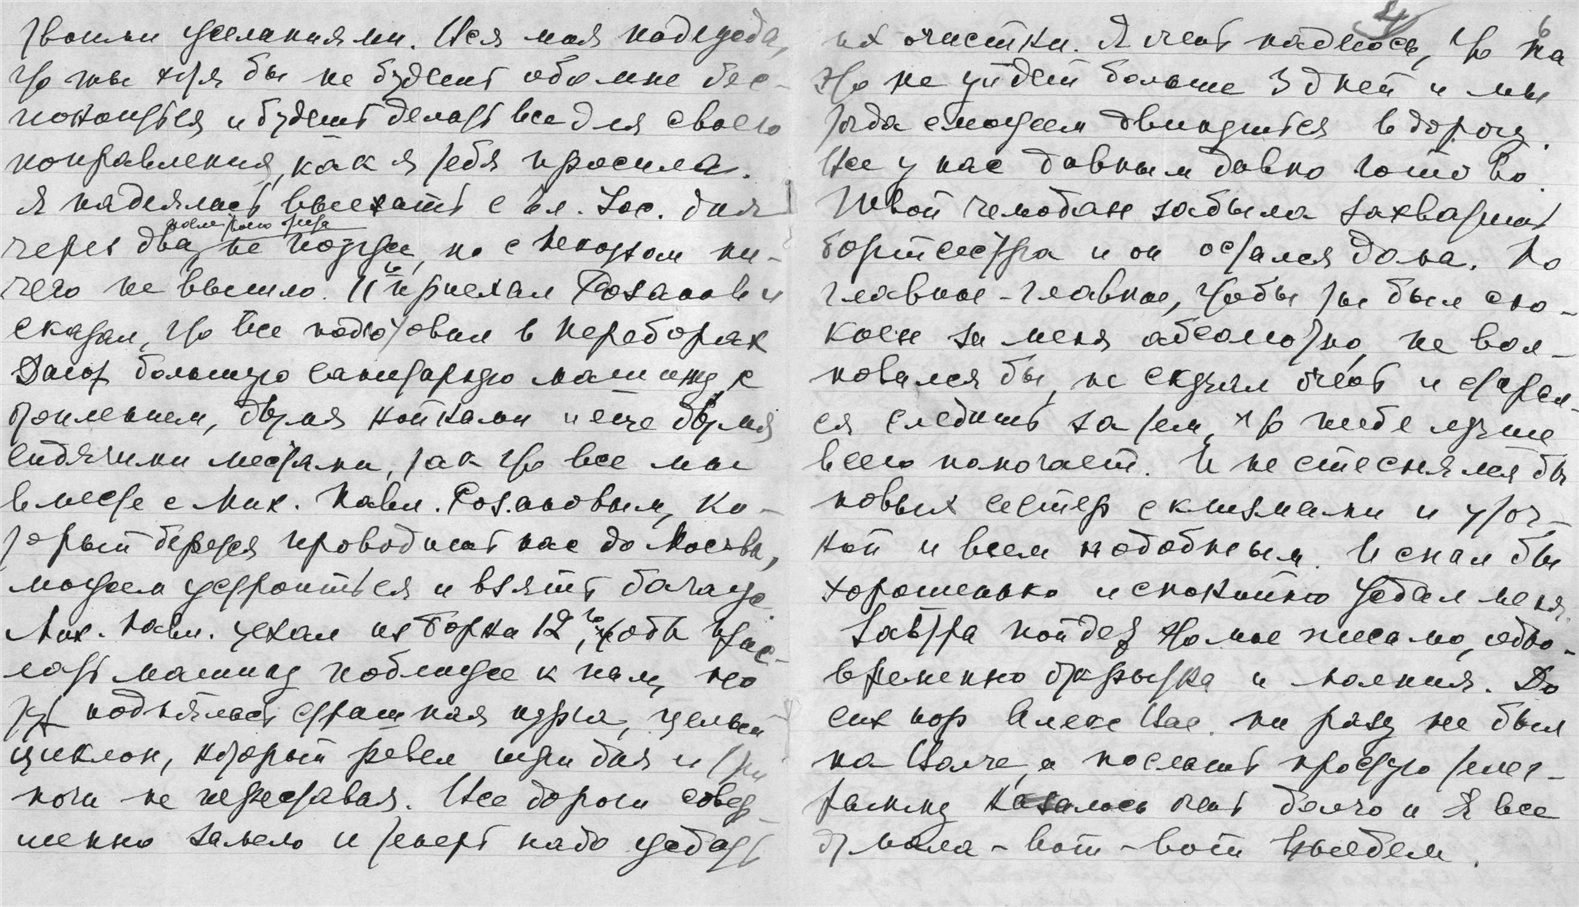 твоими желаниями. Вся моя надежда,
что ты хотя бы не будешь обо мне бес-
покоиться и будешь делать все для своего
поправления, как я тебя просила.
Я надеялась выехать с Ал. Вас. дня
через два не позже, но с ни-
чего не вышло. 11го приехал Розанов и
сказал, что все подготовил в Переборах
Дают большую санитарную машину с
отоплением, двумя койками и еще двумя
сидячими местами, так что все мы
вместе с Мих. Павл. Розановым, ко-
торый берется проводить нас до Москвы,
можем устроиться и взять багаж.
Мих. Павл. уехал из Борка 12го, чтобы прис-
лать машину поближе к нам, но
тут поднялась страшная пурга, целый
циклон, который ревел три дня и три
ночи не переставая. Все дороги совер-
шенно замело и теперь надо ждать
4
их очистки. Я очень надеюсь, что на
это не уйдет больше 3 дней и мы
тогда сможем двинуться в дорогу.
Все у нас давным давно готово.
Твой чемодан забыла захватить
бортсестра и он остался дома. Но
главное-главное, чтобы ты был спо-
коен за меня абсолютно, не вол-
новался бы, не скучал очень и старал-
ся следить за тем, что тебе лучше
всего помогает. И не стеснялся бы
новых сестер с клизмами и уточ-
кой и всем подобным. И спал бы
хорошенько и спокойно ждал меня.
Завтра пойдет это мое письмо, одно-
временно открытка и молния. До
сих пор Алекс Вас. ни разу не был
на Волге, а послать простую телег-
рамму казалось очень долго и я все
думала - вот - вот выедем.